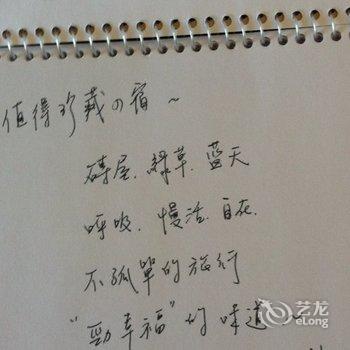 值得珍藏の宿~
磚屋.綠草.藍天
呼吸.慢活.自在.
不孤單的旅行
"勁幸福"的味道~
艺龙
eLong